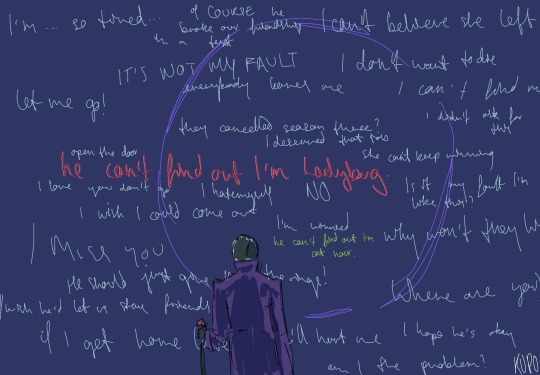 I'm... so tired...
of COURSE he
broke our friendship
in a text
I can't believe she left
IT'S NOT MY FAULT
I don't want to die
everybody leaves me
let me go!
I can't find m
I didn't ask for
this
they cancelled season three?
I deserved that
open the door
she can't keep winning
he can't find out I'm Ladybug.
I love you don't go
I hate myself
NO
Is it my fault I'm
like this?
I wish I could come out
I'm worried
he can't find out I'm
cat noir.
why won't they
I MISS YOU
He should just give the rings!
Where are you?
wish he'd let us stay friends
if I get home
'll hurt me
I hope he's okay
am I the problem?
KUPO